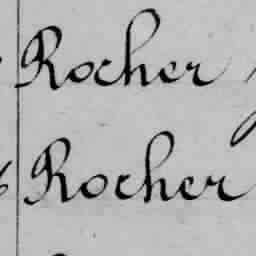 Rocher
Rocher